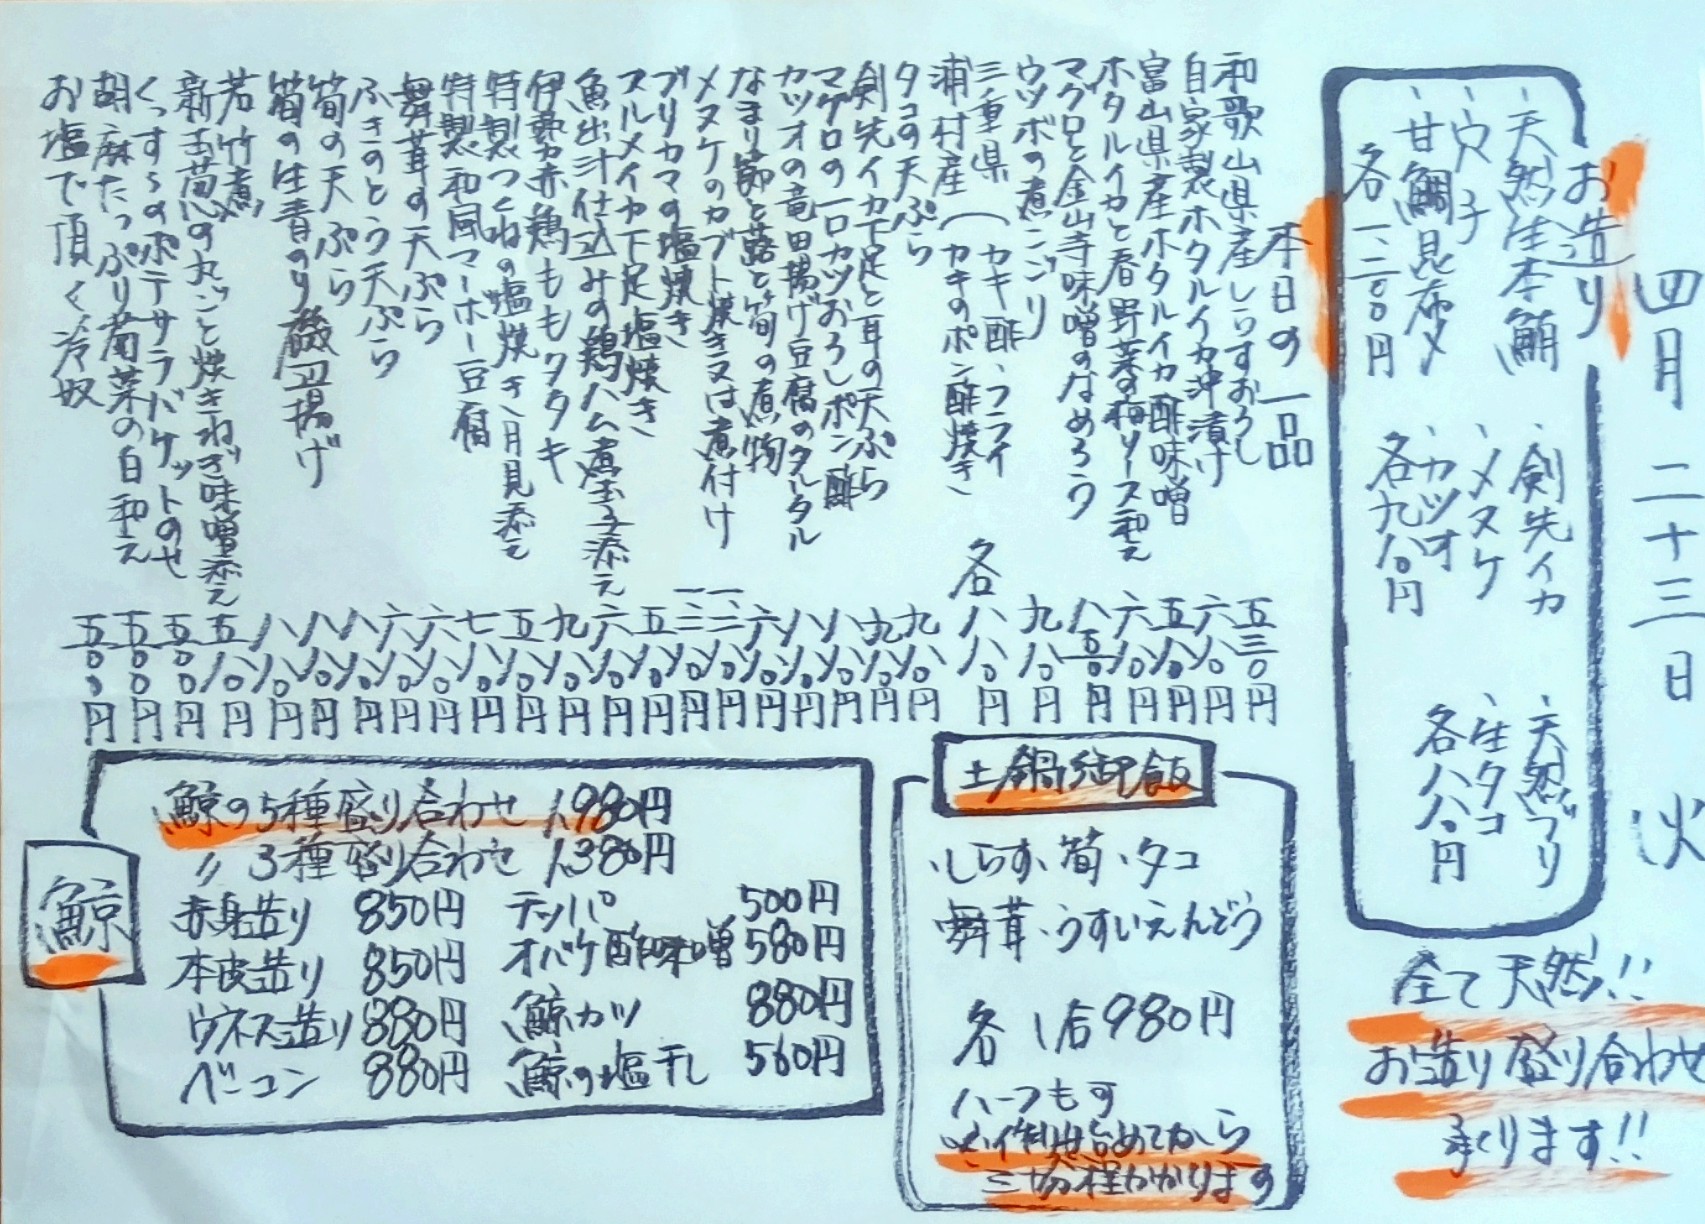 四月二十三日 火
お造り
、天然生本鮪
、穴子
、甘鯛昆布〆
各一、二〇〇円
、剣先イカ
、メヌケ
、カツオ
各九八〇円
、天然ブリ
、生タコ
各八八〇円
全て天然!!
お造り盛り合わせ
承ります!!
本日の一品
和歌山県産しらすおろし 五三〇円
自家製ホタルイカ沖漬け 六八〇円
富山県産ホタルイカ酢味噌 五八〇円
ホタルイカと春野菜の梅ソース和え 六八〇円
マグロと金山寺味噌のなめろう 八五〇円
ウツボの煮こごり 九八〇円
三重県 浦村産(カキ酢、フライ カキのポン酢焼き 各八八〇円
タコの天ぷら 九八〇円
剣先イカ下足と耳の天ぷら 九八〇円
マグロの一口カツおろしポン酢 八八〇円
カツオの竜田揚げ豆腐のタルタル 八八〇円
なまり節と蕗と筍の煮物 六八〇円
メヌケのカブト焼き又は煮付け 一、二八〇円
ブリカマの塩焼き 一、二八〇円
スルメイカ下足塩焼き 五八〇円
魚出汁仕込みの鶏ハム煮玉子添え 六八〇円
伊勢赤鶏ももタタキ 九八〇円
特製つくねの塩焼き月見添え 五八〇円
特製和風マーボー豆腐 七八〇円
舞茸の天ぷら 六八〇円
ふきのとう天ぷら 六八〇円
筍の天ぷら 八八〇円
筍の生青のり磯辺揚げ 八八〇円
若竹煮 八八〇円
新玉葱の丸ごと焼きねぎ味噌添え 五八〇円
くっすぅのポテサラバケットのせ 五〇〇円
胡麻たっぷり菊菜の白和え 五〇〇円
お塩で頂く冷奴 五〇〇円
土鍋御飯
・しらす・筍・タコ
舞茸・うすいえんどう
各1合980円
ハーフもす
※作り始めてから
三〇分程かかります
鯨
鯨の5種盛り合わせ 1,980円
〃 3種盛り合わせ 1,380円
赤身造り 850円
本皮造り 850円
ウネス造り 880円
ベーコン 880円
テッパ 500円
オバケ酢味噌 580円
鯨カツ 880円
鯨の塩干し 560円